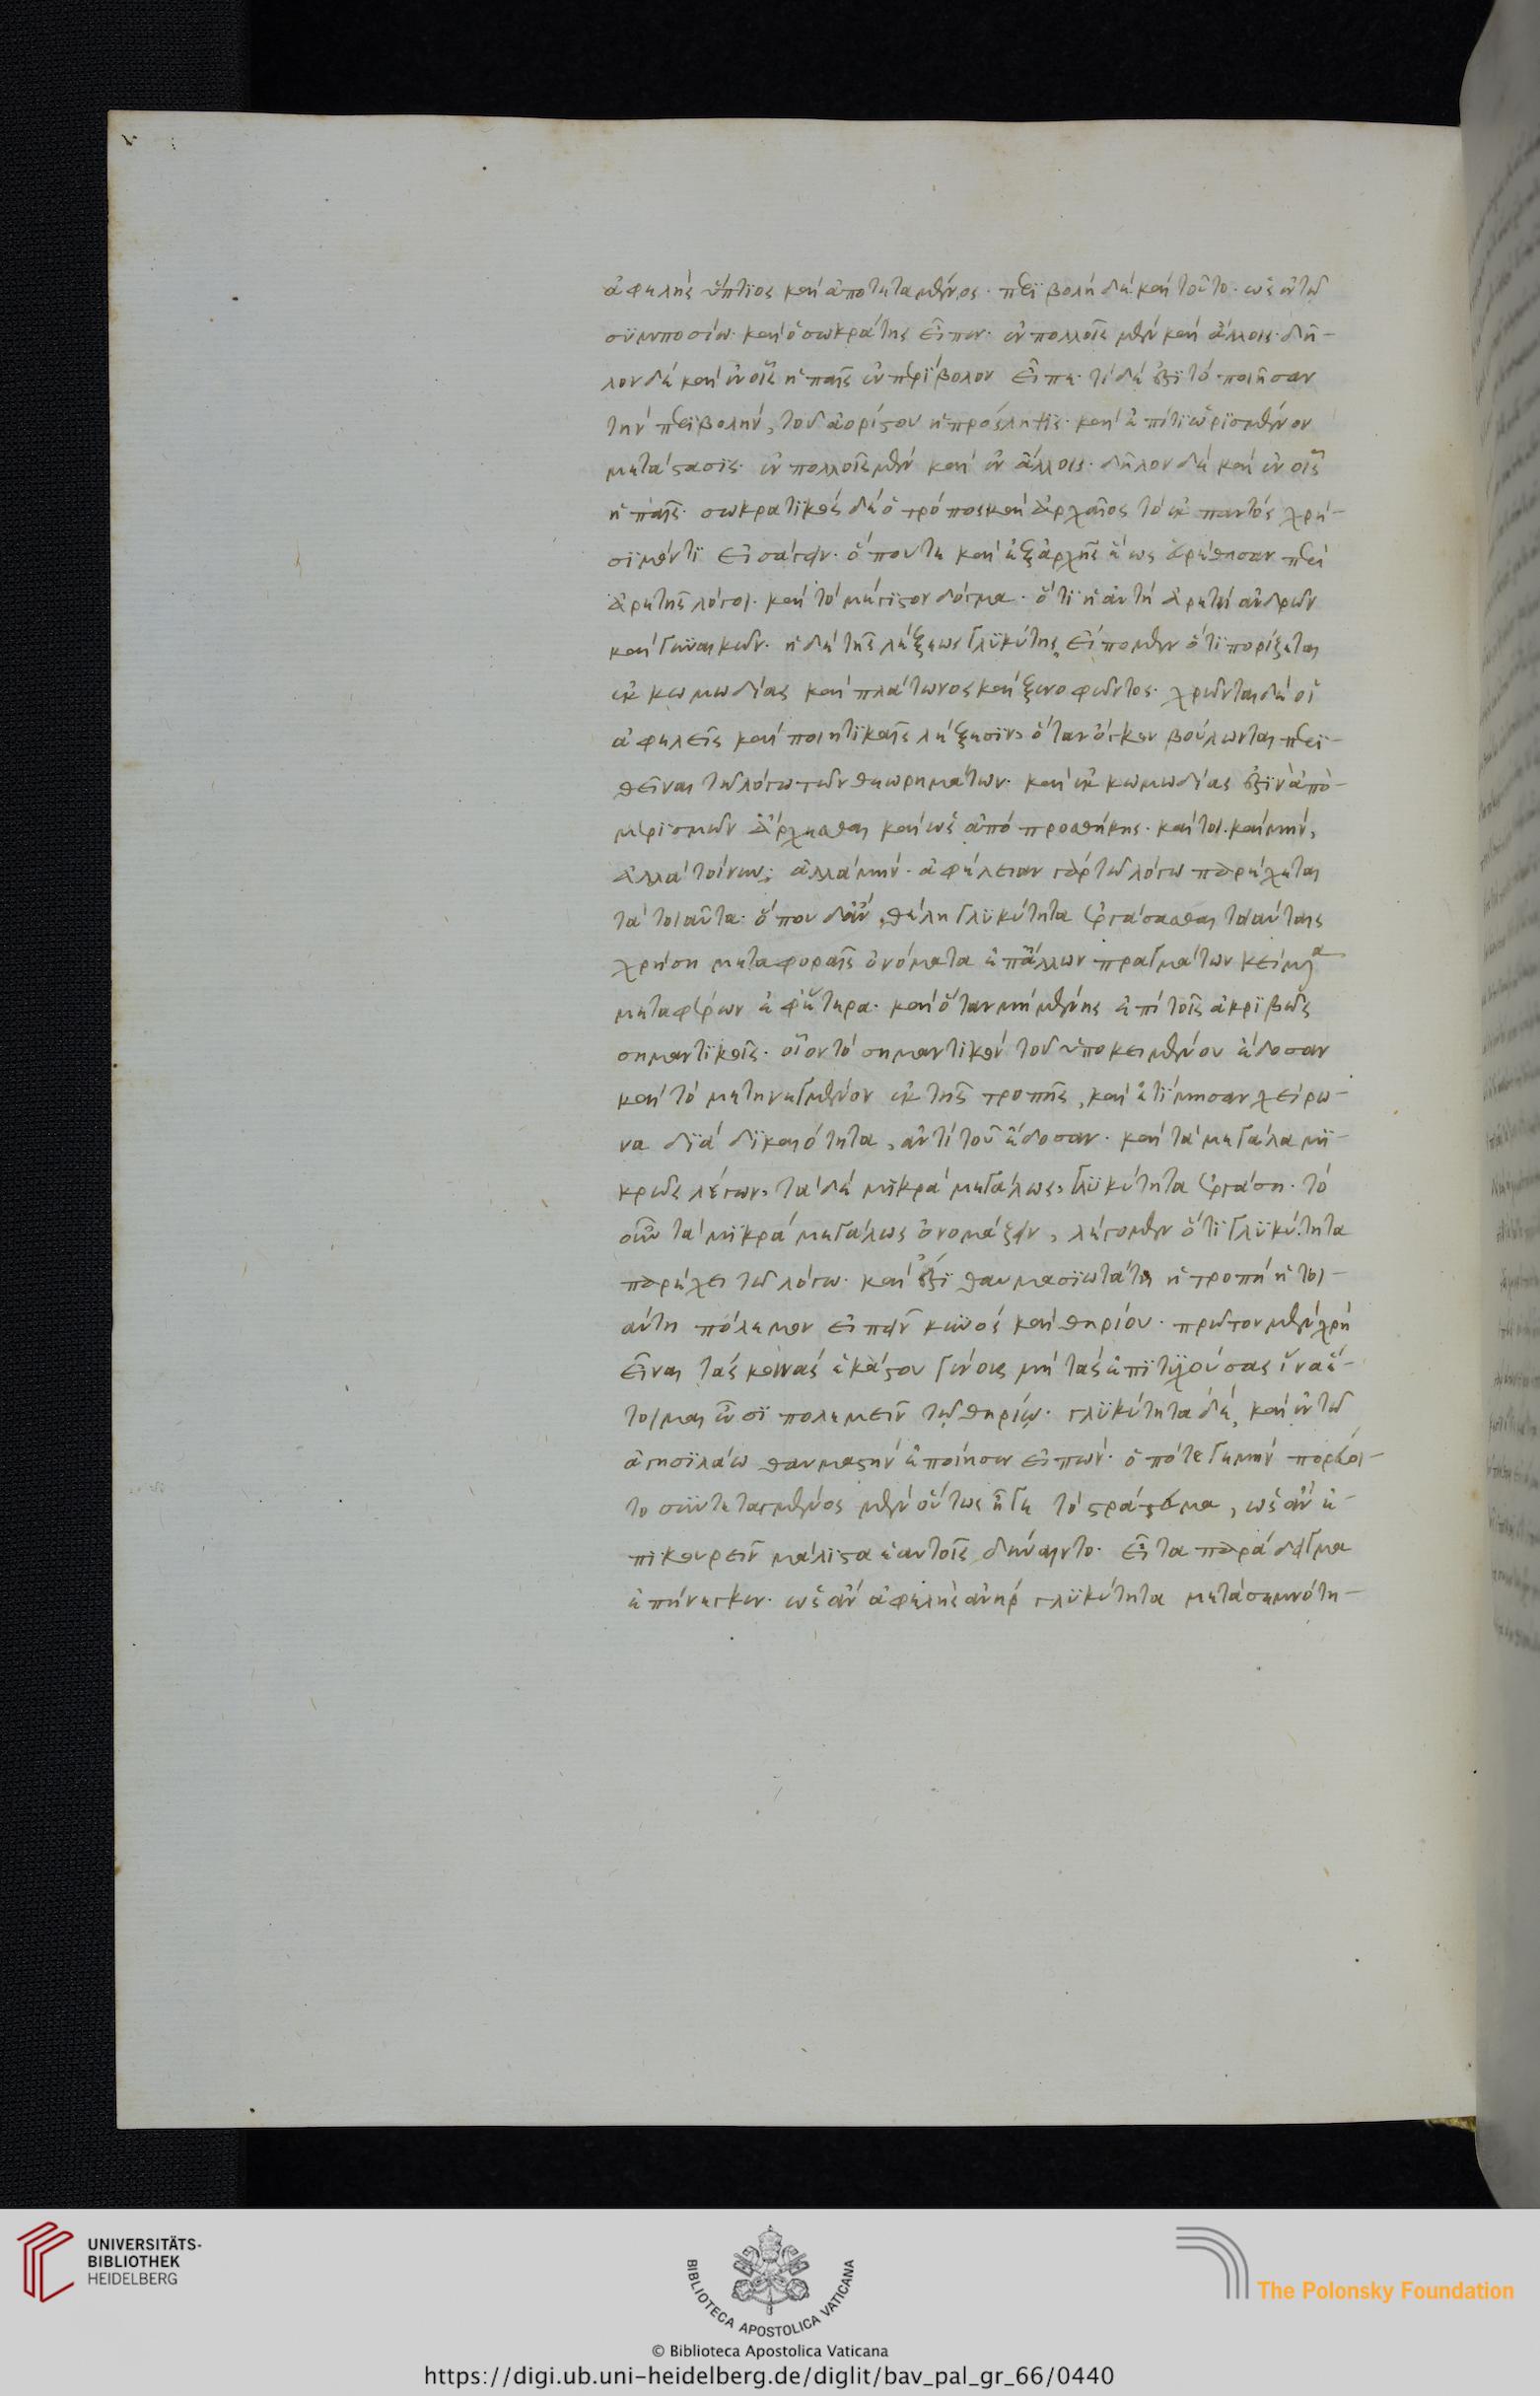 ἀφελὴς ὕπτιος καὶ ἀποτεταμένος· περιβολὴ δὲ καὶ τοῦτο· ὡς ἐν τῶ
συμποσίω· καὶ ὁ σωκράτης εἶπεν· ἐν πολλοῖς μὲν καὶ ἄλλοις· δῆ-
λον δὲ καὶ ἐν οἷς ἡ παῖς ἐνπερίβολον εἶπε· τί δέ ἐστι τὸ ποιῆσαν
τὴν περιβολὴν, τοῦ ἀορίστου ἡ πρόσληψις· καὶ ἐπί τι ὡρισμένον
μετάστασις· ἐν πολλοῖς μὲν καὶ ἐν ἄλλοις· δῆλον δὲ καὶ ἐν οἷς
ἡ παῖς· σωκρατικὸς δὲ ὁ τρόπος καὶ ἀρχαῖος τὸ ἐκ παντὸς χρή-
σιμόν τι εἰσάγειν· ὅπου γε καὶ ἐξαρχῆς ἕως ἐρρέθησαν περὶ
ἀρετῆς λόγοι· καὶ τὸ μέγιστον δόγμα· ὅτι ἡ αὐτὴ ἀρετὴ ἀνδρῶν
καὶ γυναικῶν· ἡ δὲ τῆς λέξεως γλυκύτης, εἴπομεν ὅτι πορίζεται
ἐκ κωμωδίας καὶ πλάτωνος καὶ ξενοφῶντος· χρῶνται δὲ οἱ
ἀφελεῖς καὶ ποιητικαῖς λέξεσιν, ὅταν ὄγκον βούλωνται περι-
θεῖναι τῶ λόγω τῶν θεωρημάτων· καὶ ἐκ κωμωδίας ἐστὶν ἀπὸ
μερισμῶν ἄρχεσθαι καὶ ὡς ἀπὸ προσθήκης· καί τοι. καὶ μὴν,
ἀλλὰ τοίνυν; ἀλλὰ μὴν· ἀφέλειαν γὰρ τῶ λόγω παρέχεται
τὰ τοιαῦτα· ὅπου δἂν θέλη γλυκύτητα ἐργάσασθαι τοιαύταις
χρήση μεταφοραῖς ὀνόματα ἐπἄλλων πραγμάτων κείμενα
μεταφέρων ἐφἕτερα· καὶ ὅταν μὴ μένης ἐπὶ τοῖς ἀκριβῶς
σημαντικοῖς· οἷον τὸ σημαντικὸν τοῦ ὑποκειμένου ἔδοσαν
καὶ τὸ μετηνεγμένον ἐκ τῆς τροπῆς, καὶ ἐτίμησαν χείρω-
να διὰ δικαιότητα, ἀντὶ τοῦ ἔδοσαν· καὶ τὰ μεγάλα μι-
κρῶς λέγων, τὰ δὲ μικρὰ μεγάλως, γλυκύτητα ἐργάση· τὸ
οὖν τὰ μικρὰ μεγάλως ὀνομάζειν, λέγομεν ὅτι γλυκύτητα
παρέχει τῶ λόγω· καὶ ἔστι θαυμασιωτάτη ἡ τροπὴ ἡ τοι-
αύτη πόλεμον εἰπεῖν κυνὸς καὶ θηρίου· πρῶτον μὲν χρὴ
εἶναι τὰς κοινὰς ἑκάστου γένους μὴ τὰς ἐπιτυχούσας ἵνα ἕ-
τοιμαι ὦσι πολεμεῖν τῷ θηρίῳ· γλυκύτητα δὲ, καὶ ἐν τῶ
ἀγησιλάω θαυμαστὴν ἐποίησεν εἰπών· ὁπότε γεμὴν πορεύοι-
το συντεταγμένος μὲν οὕτως ἦγε τὸ στράτευμα, ὡς ἂν ἐ-
πικουρεῖν μάλιστα ἑαυτοῖς δύναιντο· εἶτα παράδειγμα
ἐπήνεγκεν· ὡς ἂν ἀφελὴς ἀνὴρ γλυκύτητα μετὰ σεμνότη-
UNIVERSITÄTS-
BIBLIOTHEK
HEIDELBERG
BIBLIOTECA APOSTOLICA VATICANA
The Polonsky Foundation
© Biblioteca Apostolica Vaticana
https://digi.ub.uni-heidelberg.de/diglit/bav_pal_gr_66/0440